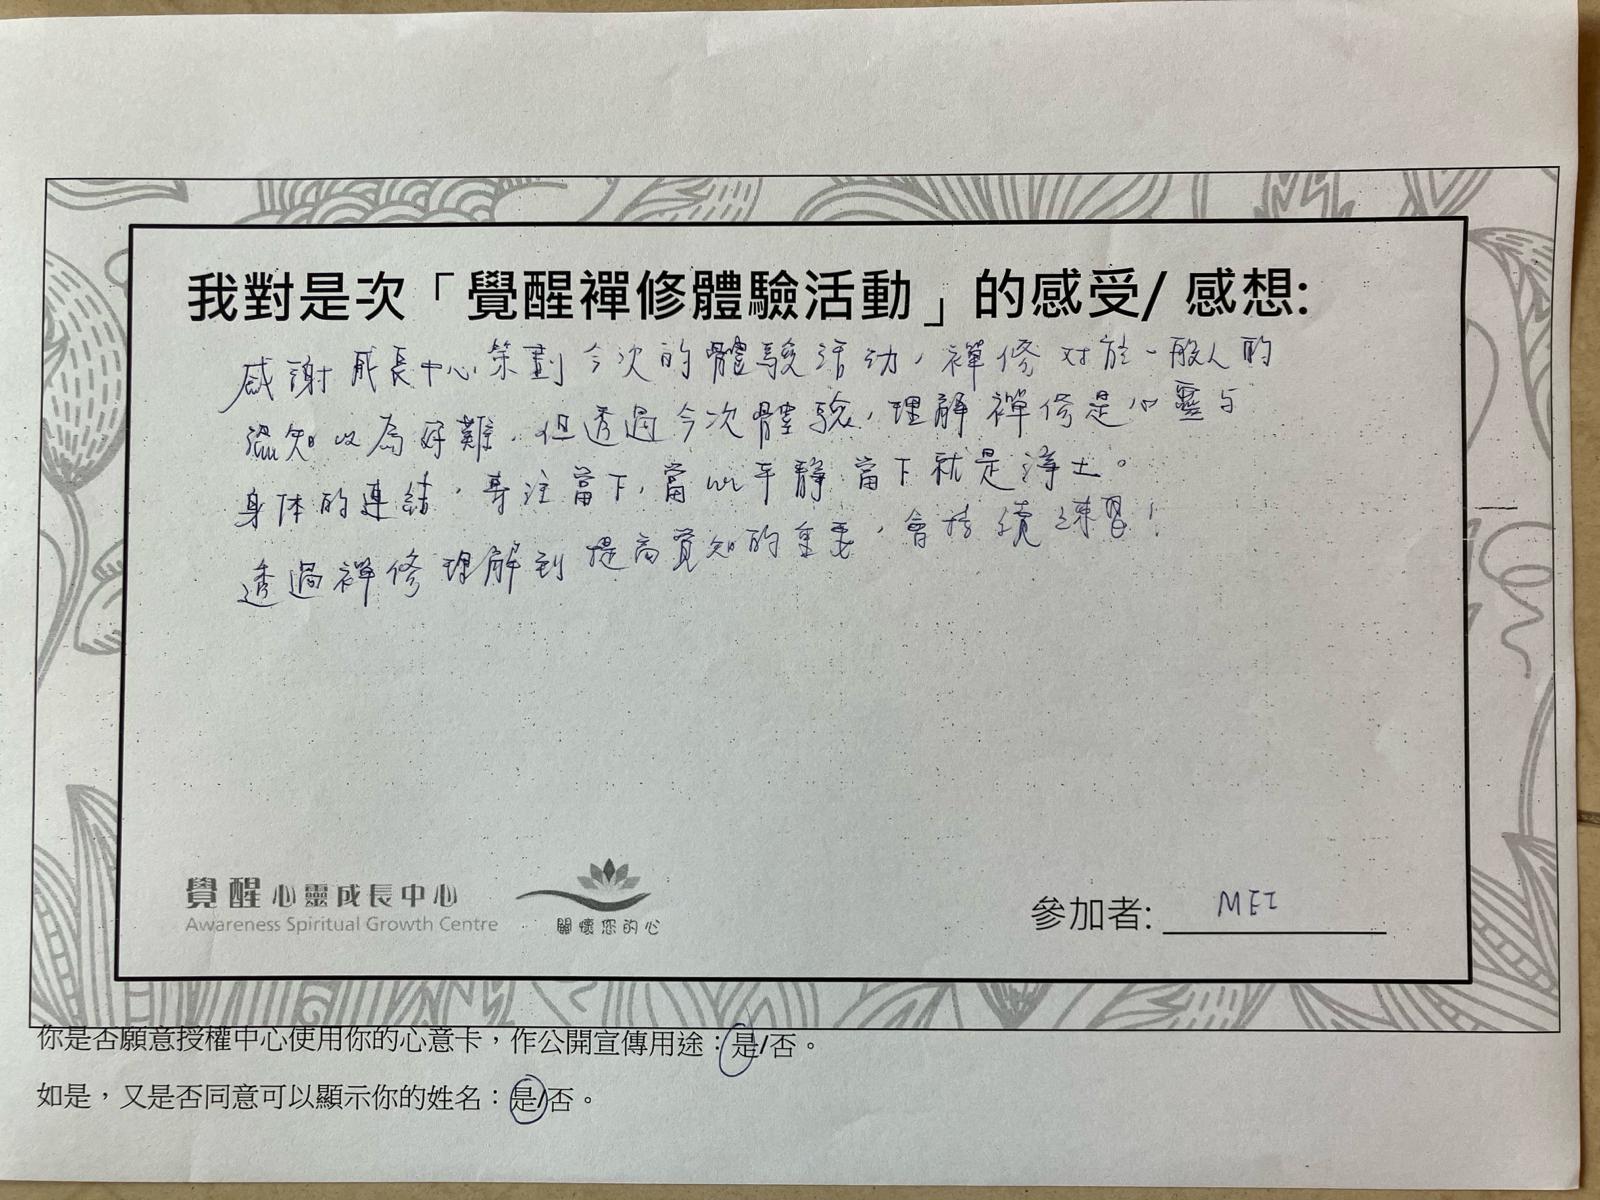 我對是次「覺醒禪修體驗活動」的感受/ 感想:
感謝成長中心策劃今次的體驗活动，禪修对於一般人的
認知以為好難，但透過今次體驗，理解禪修是心靈与
身体的連結，專注當下，當心平靜當下就是淨土。
透過禪修理解到提高覺知的重要，會持續練習！
覺醒心靈成長中心
Awareness Spiritual Growth Centre
關懷您的心
參加者: MEI
你是否願意授權中心使用你的心意卡，作公開宣傳用途：是/否。
如是，又是否同意可以顯示你的姓名：是/否。